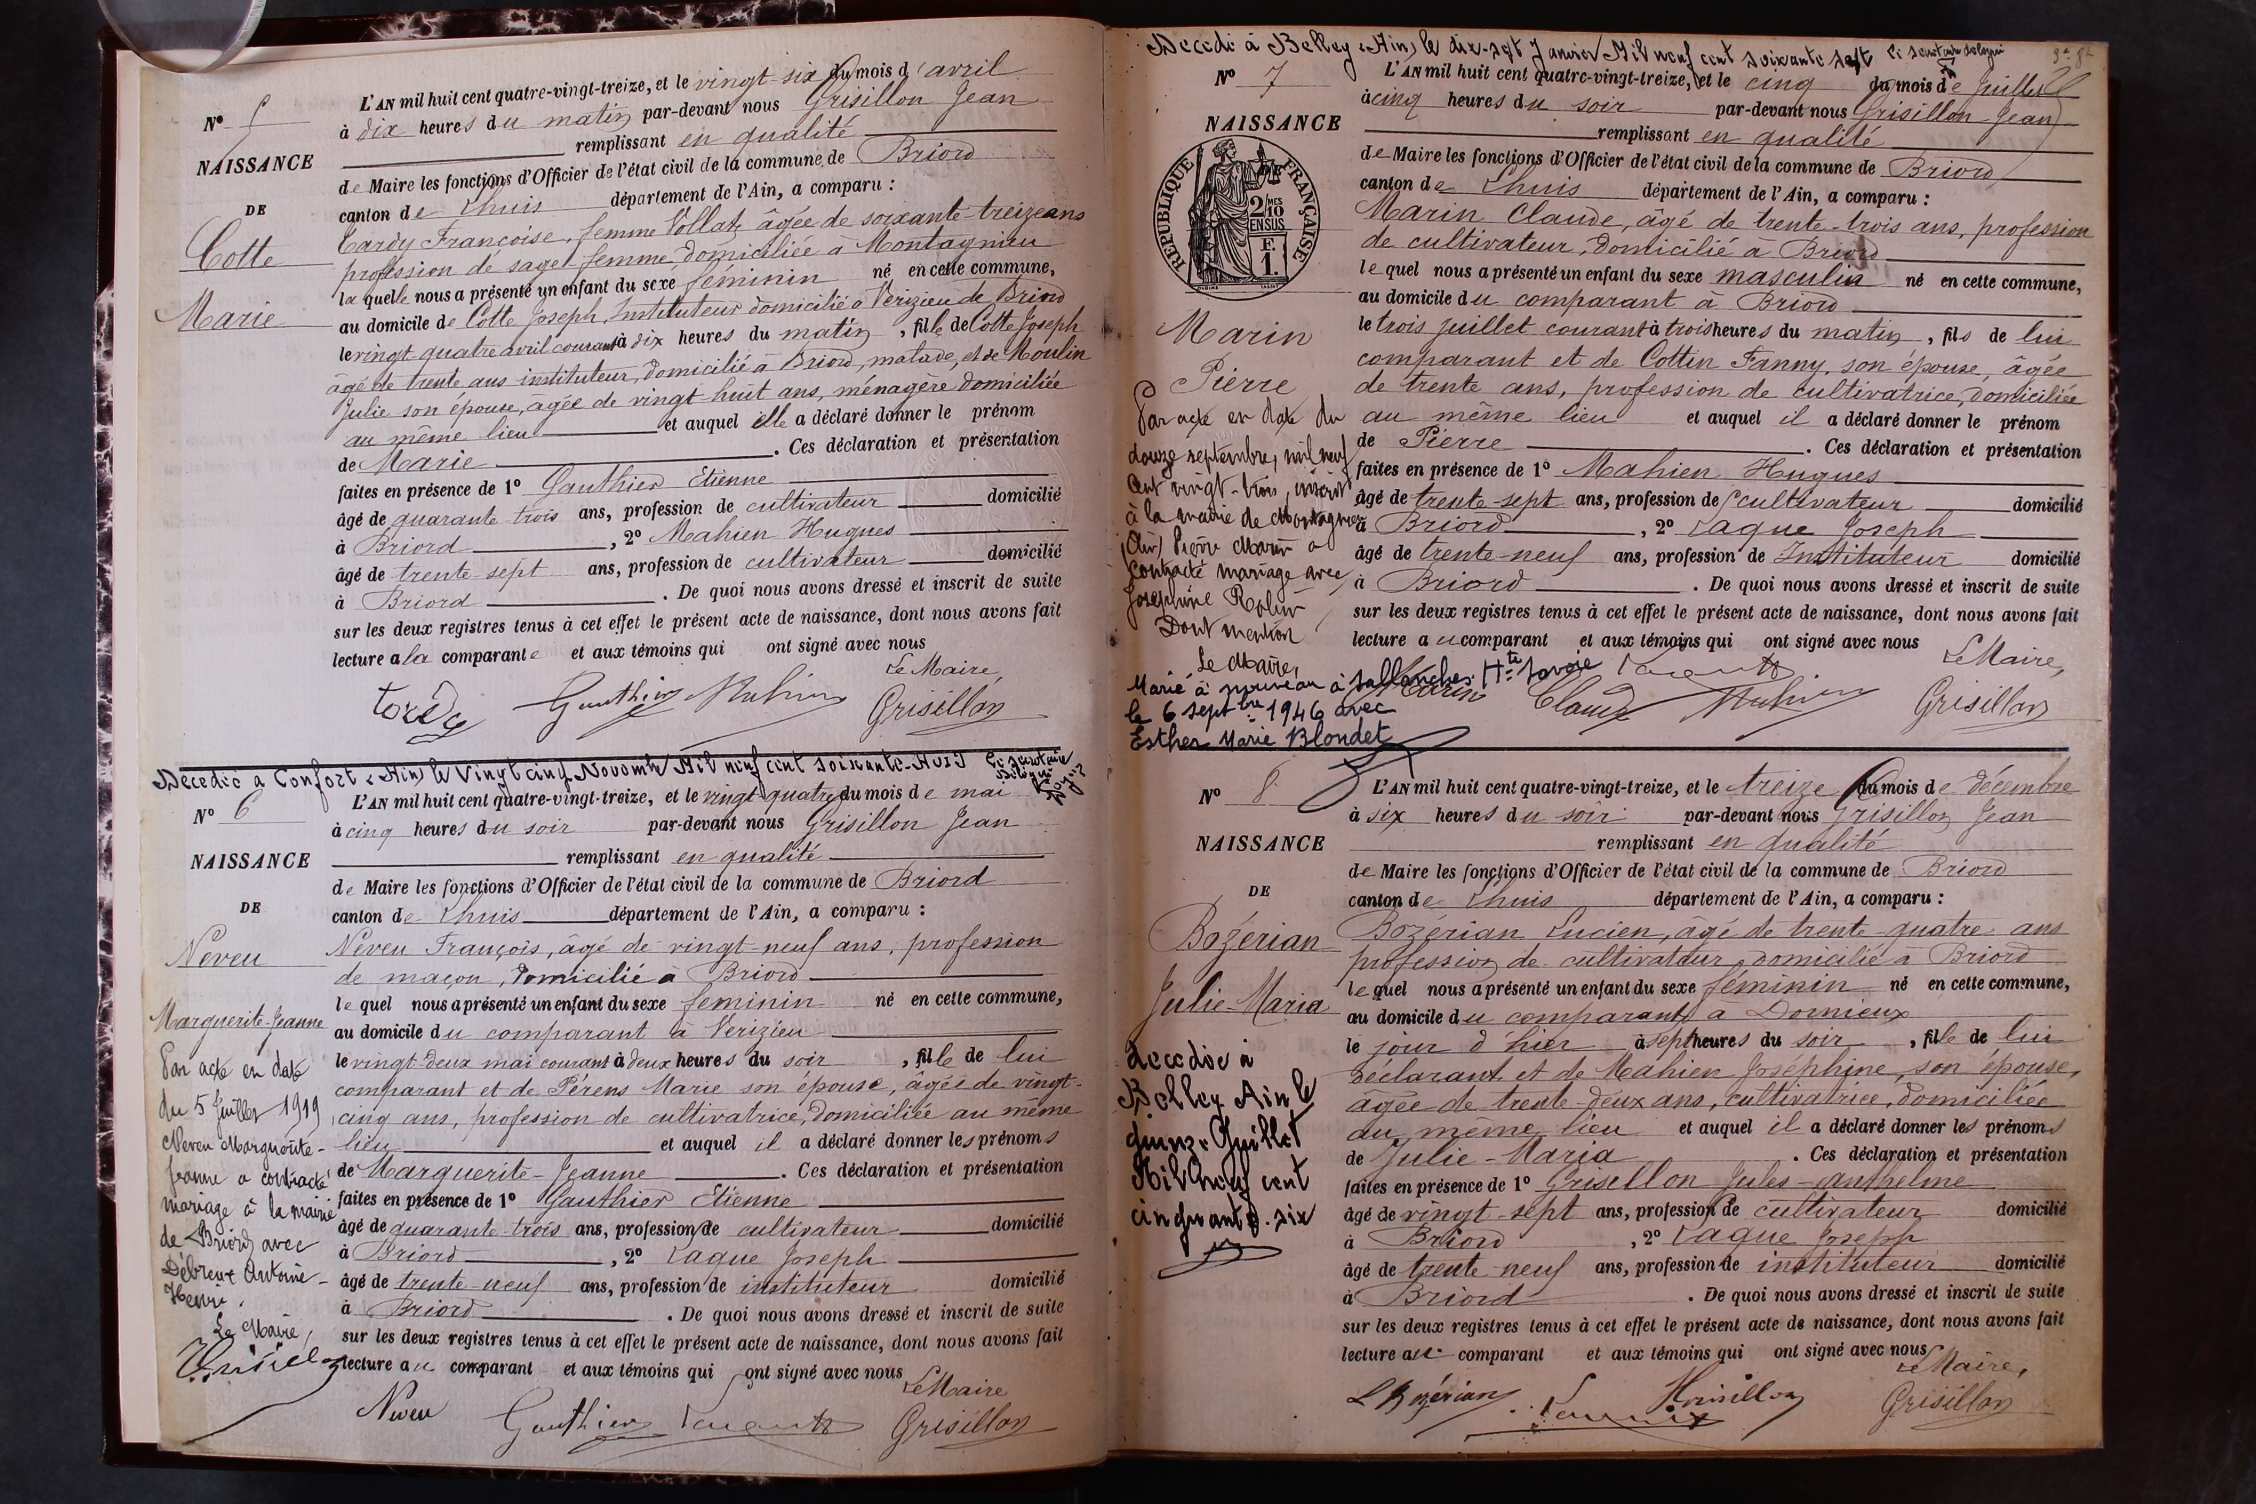 N° 5
NAISSANCE
DE
Cotte
Marie
L'AN mil huit cent quatre-vingt-treize, et le vingt-six du mois d'avril
à dix heures du matin par-devant nous Grisillon Jean
remplissant en qualité
de Maire les fonctions d'Officier de l'état civil de la commune de Briord
canton de Lhuis département de l'Ain, a comparu :
Tardy Françoise, femme Vollat, âgée de soixante-treize ans
profession de sage femme domiciliée à Montagnieu
laquelle nous a présenté un enfant du sexe féminin né en cette commune,
au domicile de Cotte Joseph, Instituteur domicilié à Vérizieu de Briord
le vingt quatre avril courant à dix heures du matin, fille de Cotte Joseph
âgé de trente ans instituteur, domicilié à Briord, malade, et de Moulin
Julie son épouse, âgée de vingt-huit ans, ménagère domiciliée
au même lieu et auquel elle a déclaré donner le prénom
de Marie. Ces déclaration et présentation
faites en présence de 1° Gauthier Etienne
âgé de quarante trois ans, profession de cultivateur domicilié
à Briord, 2° Mahien Hugues
âgé de trente-sept ans, profession de cultivateur domicilié
à Briord. De quoi nous avons dressé et inscrit de suite
sur les deux registres tenus à cet effet le présent acte de naissance, dont nous avons fait
lecture à la comparante et aux témoins qui ont signé avec nous
Le Maire,
Gauthier Mahien Grisillon
Décédée à Confort (Ain) le Vingt cinq Novembre Mil neuf cent soixante-huit
N° 6
NAISSANCE
DE
Neveu
Marguerite-Jeanne
Par acte en date
du 5 Juillet 1919
Neveu Marguerite-
Jeanne a contracté
mariage à la mairie
de Briord avec
Débreux Antoine-
Henri.
Le Maire,
L'AN mil huit cent quatre-vingt-treize, et le vingt-quatre du mois de mai
à cinq heures du soir par-devant nous Grisillon Jean
remplissant en qualité
de Maire les fonctions d'Officier de l'état civil de la commune de Briord
canton de Lhuis département de l'Ain, a comparu :
Neveu François, âgé de vingt-neuf ans, profession
de maçon, domicilié à Briord
lequel nous a présenté un enfant du sexe féminin né en cette commune,
au domicile du comparant à Vérizieu
le vingt-deux mai courant à deux heures du soir, fille de lui
comparant et de Pérens Marie son épouse, âgée de vingt-
cinq ans, profession de cultivatrice, domiciliée au même
lieu et auquel il a déclaré donner les prénoms
de Marguerite-Jeanne. Ces déclaration et présentation
faites en présence de 1° Gauthier Etienne
âgé de quarante-trois ans, profession de cultivateur domicilié
à Briord, 2° Laque Joseph
âgé de trente-neuf ans, profession de instituteur domicilié
à Briord. De quoi nous avons dressé et inscrit de suite
sur les deux registres tenus à cet effet le présent acte de naissance, dont nous avons fait
lecture au comparant et aux témoins qui ont signé avec nous
Le Maire
Neveu Gauthier Grisillon
Décédé à Belley (Ain) le dix-sept Janvier Mil neuf cent soixante sept
N° 7
NAISSANCE
REPUBLIQUE FRANÇAISE
2/10 MES
EN SUS
F.
1.
Marin
Pierre
Par acte en date du
douze septembre, mil neuf
cent vingt-trois, inscrit
à la mairie de Montagnieu
(Ain) Pierre Marin a
contracté mariage avec
Joséphine Rolin
Dont mention
Le Maire,
Marié à nouveau à Sallanches Hte Savoie
le 6 septbre 1946 avec
Esther Marie Blondet
L'AN mil huit cent quatre-vingt-treize, et le cinq du mois de Juillet
à cinq heures du soir par-devant nous Grisillon Jean
remplissant en qualité
de Maire les fonctions d'Officier de l'état civil de la commune de Briord
canton de Lhuis département de l'Ain, a comparu :
Marin Claude, âgé de trente-trois ans, profession
de cultivateur, domicilié à Briord
lequel nous a présenté un enfant du sexe masculin né en cette commune,
au domicile du comparant à Briord
le trois juillet courant à trois heures du matin, fils de lui
comparant et de Cottin Fanny, son épouse, âgée
de trente ans, profession de cultivatrice, domiciliée
au même lieu et auquel il a déclaré donner le prénom
de Pierre. Ces déclaration et présentation
faites en présence de 1° Mahien Hugues
âgé de trente-sept ans, profession de cultivateur domicilié
à Briord, 2° Laque Joseph
âgé de trente-neuf ans, profession de Instituteur domicilié
à Briord. De quoi nous avons dressé et inscrit de suite
sur les deux registres tenus à cet effet le présent acte de naissance, dont nous avons fait
lecture au comparant et aux témoins qui ont signé avec nous
Le Maire,
Marin Claude Mahien Grisillon
N° 8
NAISSANCE
DE
Bozérian
Julie-Maria
décédée à
Belley Ain le
quinze Juillet
Mil neuf cent
cinquante-six
L'AN mil huit cent quatre-vingt-treize, et le treize du mois de décembre
à six heures du soir par-devant nous Grisillon Jean
remplissant en qualité
de Maire les fonctions d'Officier de l'état civil de la commune de Briord
canton de Lhuis département de l'Ain, a comparu :
Bozérian Lucien, âgé de trente-quatre ans
profession de cultivateur domicilié à Briord
lequel nous a présenté un enfant du sexe féminin né en cette commune,
au domicile du comparant à Dornieux
le jour d'hier à sept heures du soir, fille de lui
déclarant et de Mahien Joséphine, son épouse,
âgée de trente-deux ans, cultivatrice, domiciliée
au même lieu et auquel il a déclaré donner les prénoms
de Julie-Maria. Ces déclaration et présentation
faites en présence de 1° Grisillon Jules-Anthelme
âgé de vingt-sept ans, profession de cultivateur domicilié
à Briord, 2° Laque Joseph
âgé de trente neuf ans, profession de instituteur domicilié
à Briord. De quoi nous avons dressé et inscrit de suite
sur les deux registres tenus à cet effet le présent acte de naissance, dont nous avons fait
lecture au comparant et aux témoins qui ont signé avec nous
Le Maire,
L Bozérian Grisillon Grisillon